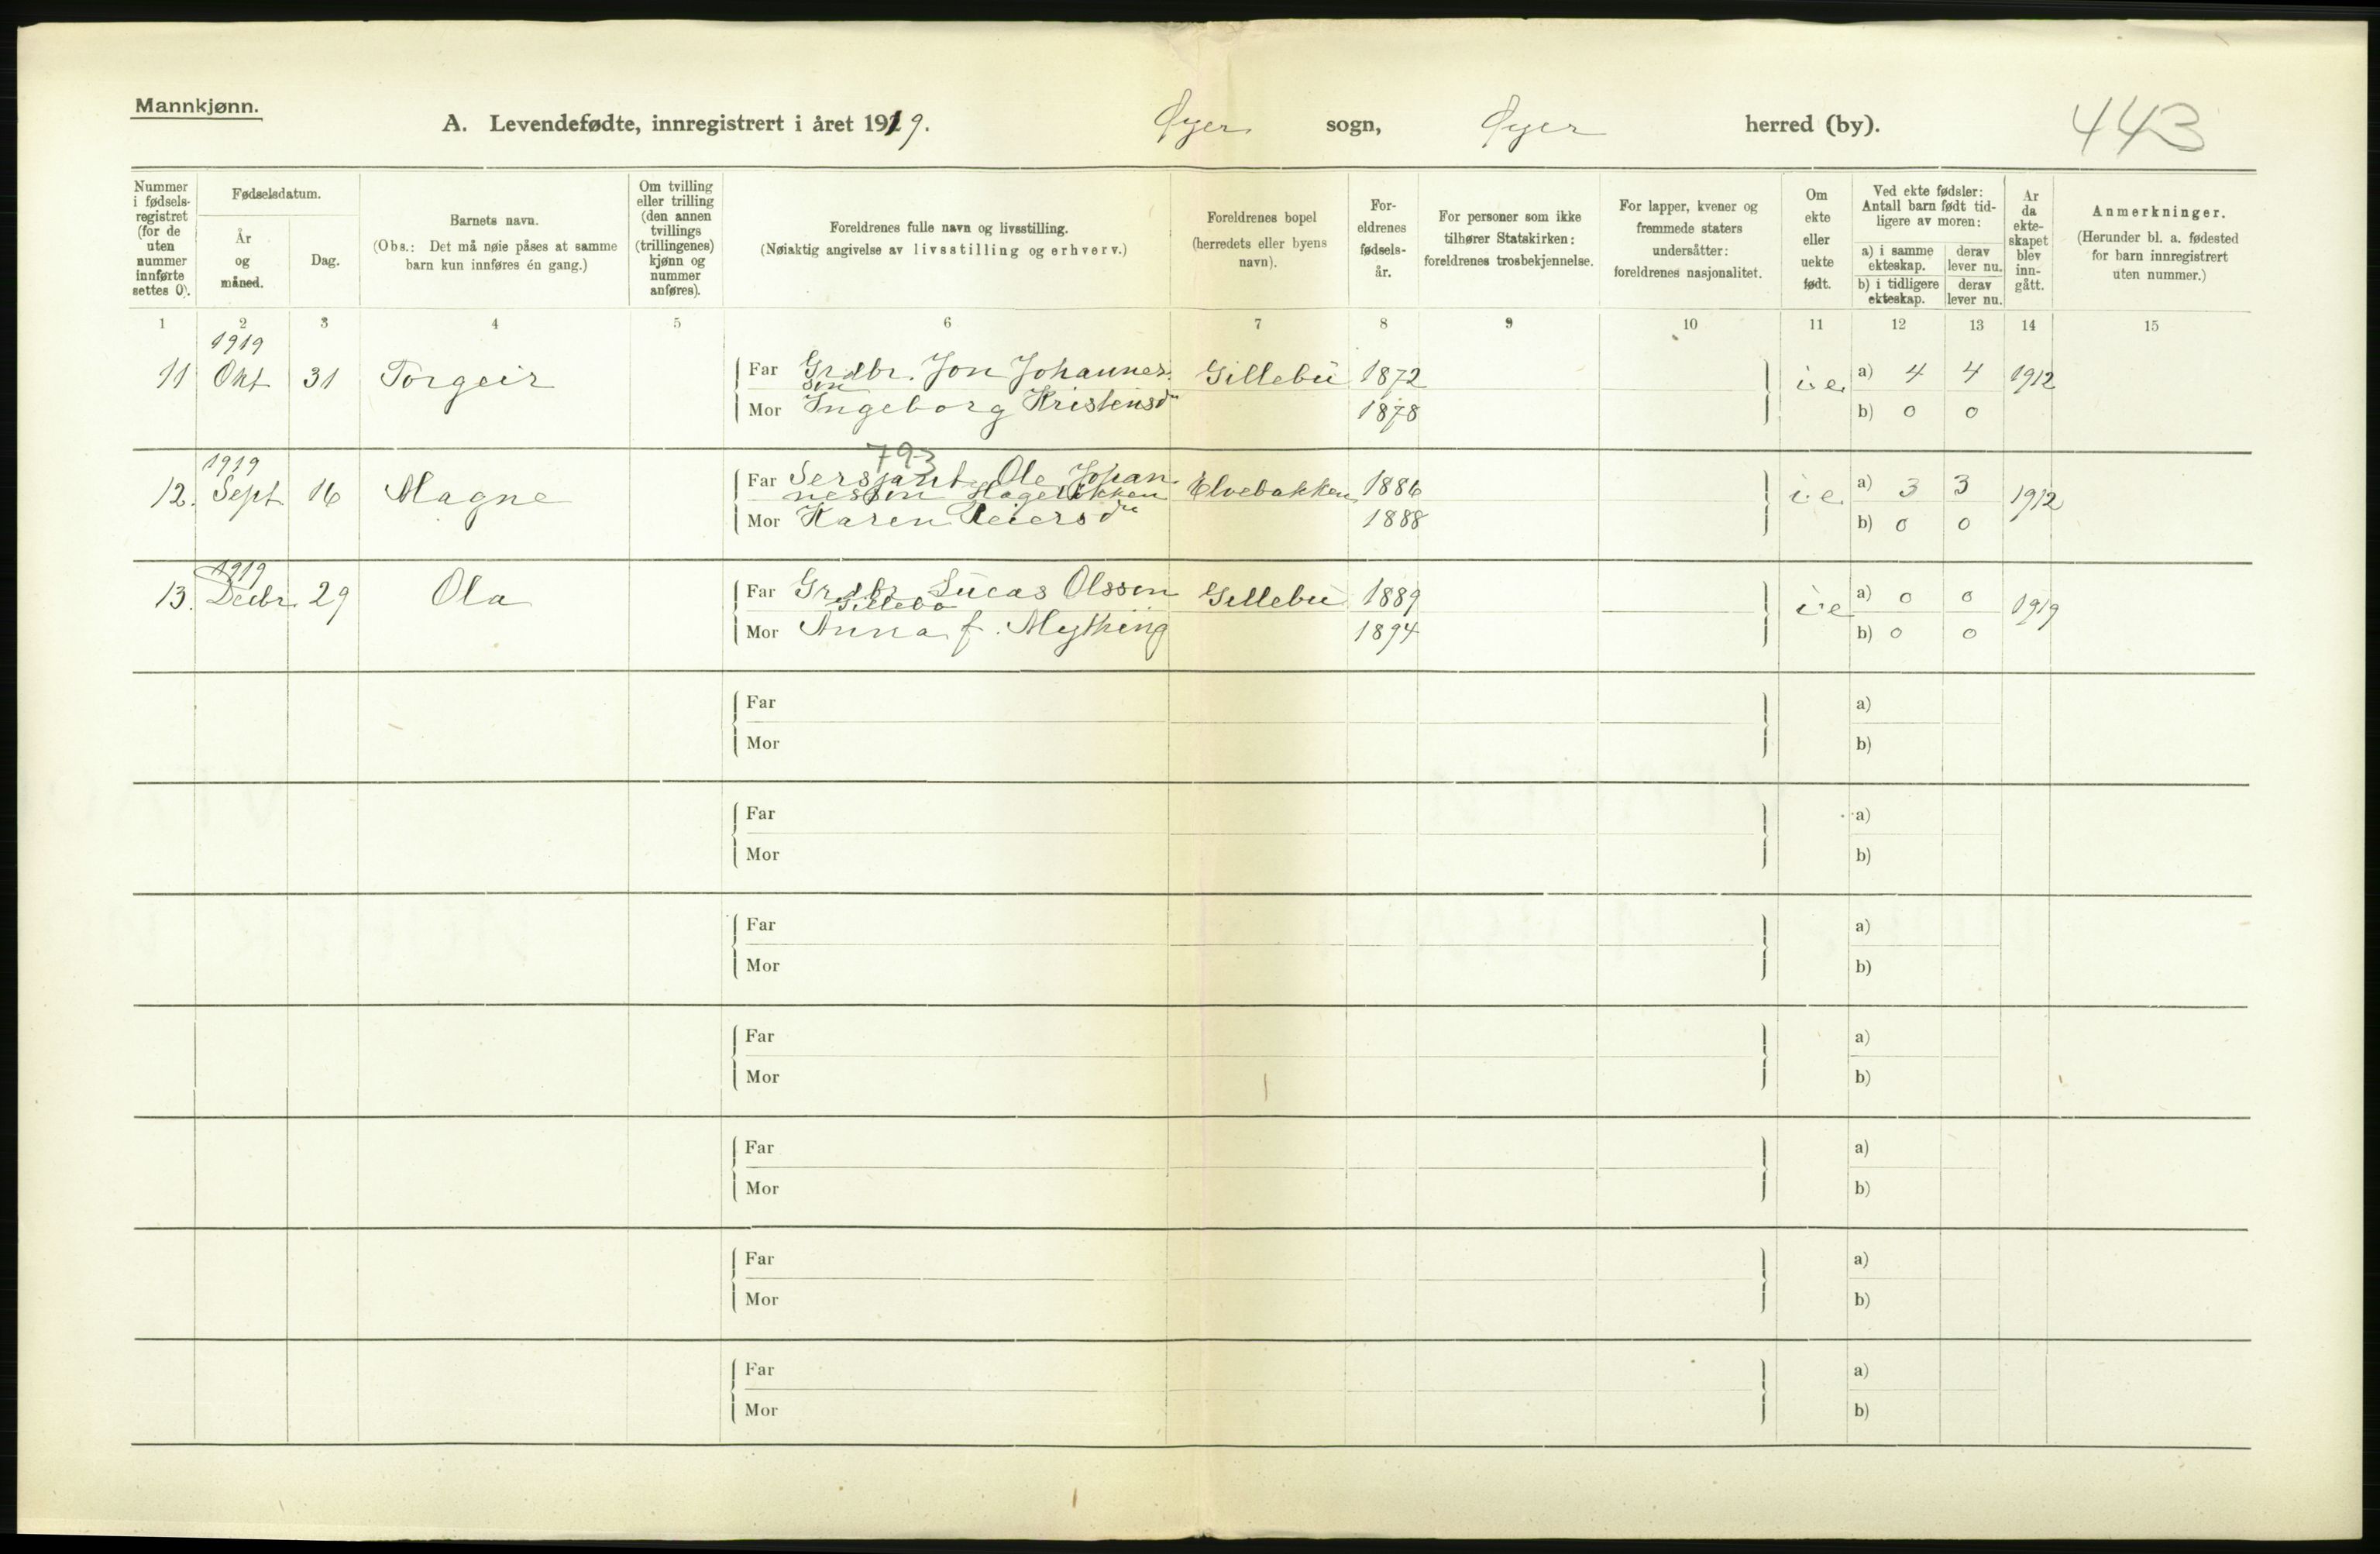 Mannkjønn.
A. Levendefødte, innregistrert i året 1919. Øyer sogn, Øyer herred (by). 443
Nummer i fødsels-registret (for de uten nummer innførte settes 0).
Fødselsdatum.
År og måned.
Dag.
Barnets navn.
(Obs.: Det må nøie påses at samme barn kun innføres én gang.)
Om tvilling eller trilling (den annen tvillings (trillingenes) kjønn og nummer anføres).
Foreldrenes fulle navn og livsstilling.
(Nøiaktig angivelse av livsstilling og erhverv.)
Foreldrenes bopel (herredets eller byens navn).
For-eldrenes fødsels-år.
For personer som ikke tilhører Statskirken: foreldrenes trosbekjennelse.
For lapper, kvener og fremmede staters undersåtter: foreldrenes nasjonalitet.
Om ekte eller uekte født.
Ved ekte fødsler: Antall barn født tid-ligere av moren:
a) i samme ekteskap. derav lever nu.
b) i tidligere ekteskap. derav lever nu.
År da ekte-skapet blev inn-gått.
Anmerkninger.
(Herunder bl. a. fødested for barn innregistrert uten nummer.)
1 2 3 4 5 6 7 8 9 10 11 12 13 14 15
1919
11 Okt 31 Torgeir Far Grdbr. Jon Johannes-
son Gillebu 1872 i.e. a) 4 4 1912
Mor Ingeborg Kristensdr 1878 b) 0 0
793
1919
12. Sept 16 Magne Far Sersjant Ole Johan-
nessen Hageløkken Elvebakken 1886 i.e. a) 3 3 1912
Mor Karen Reiersdr 1888 b) 0 0
1919
13. Decbr. 29 Ola Far Grdbr Lucas Olsson
Gillebo Gillebu 1889 i.e a) 0 0 1919
Mor Anna f. Mything 1894 b) 0 0
Far a)
Mor b)
Far a)
Mor b)
Far a)
Mor b)
Far a)
Mor b)
Far a)
Mor b)
Far a)
Mor b)
Far a)
Mor b)